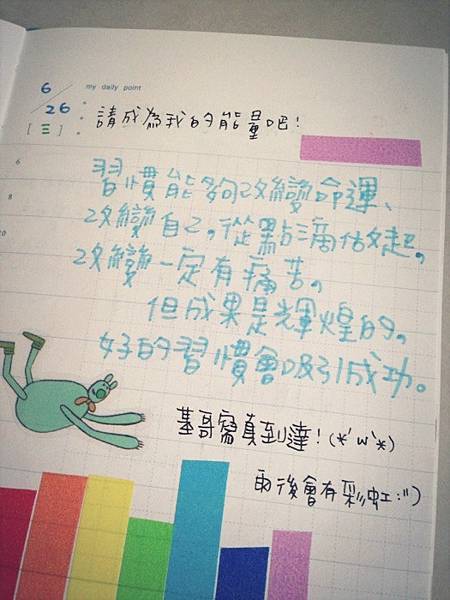 6/26
my daily point
[三]
請成為我的能量吧!
6
習慣能夠改變命運、
8
改變自己。從點滴做起。
10
改變一定有痛苦。
但成果是輝煌的。
好的習慣會吸引成功。
基哥寫真到達!(*'ω'*)
雨後會有彩虹:")